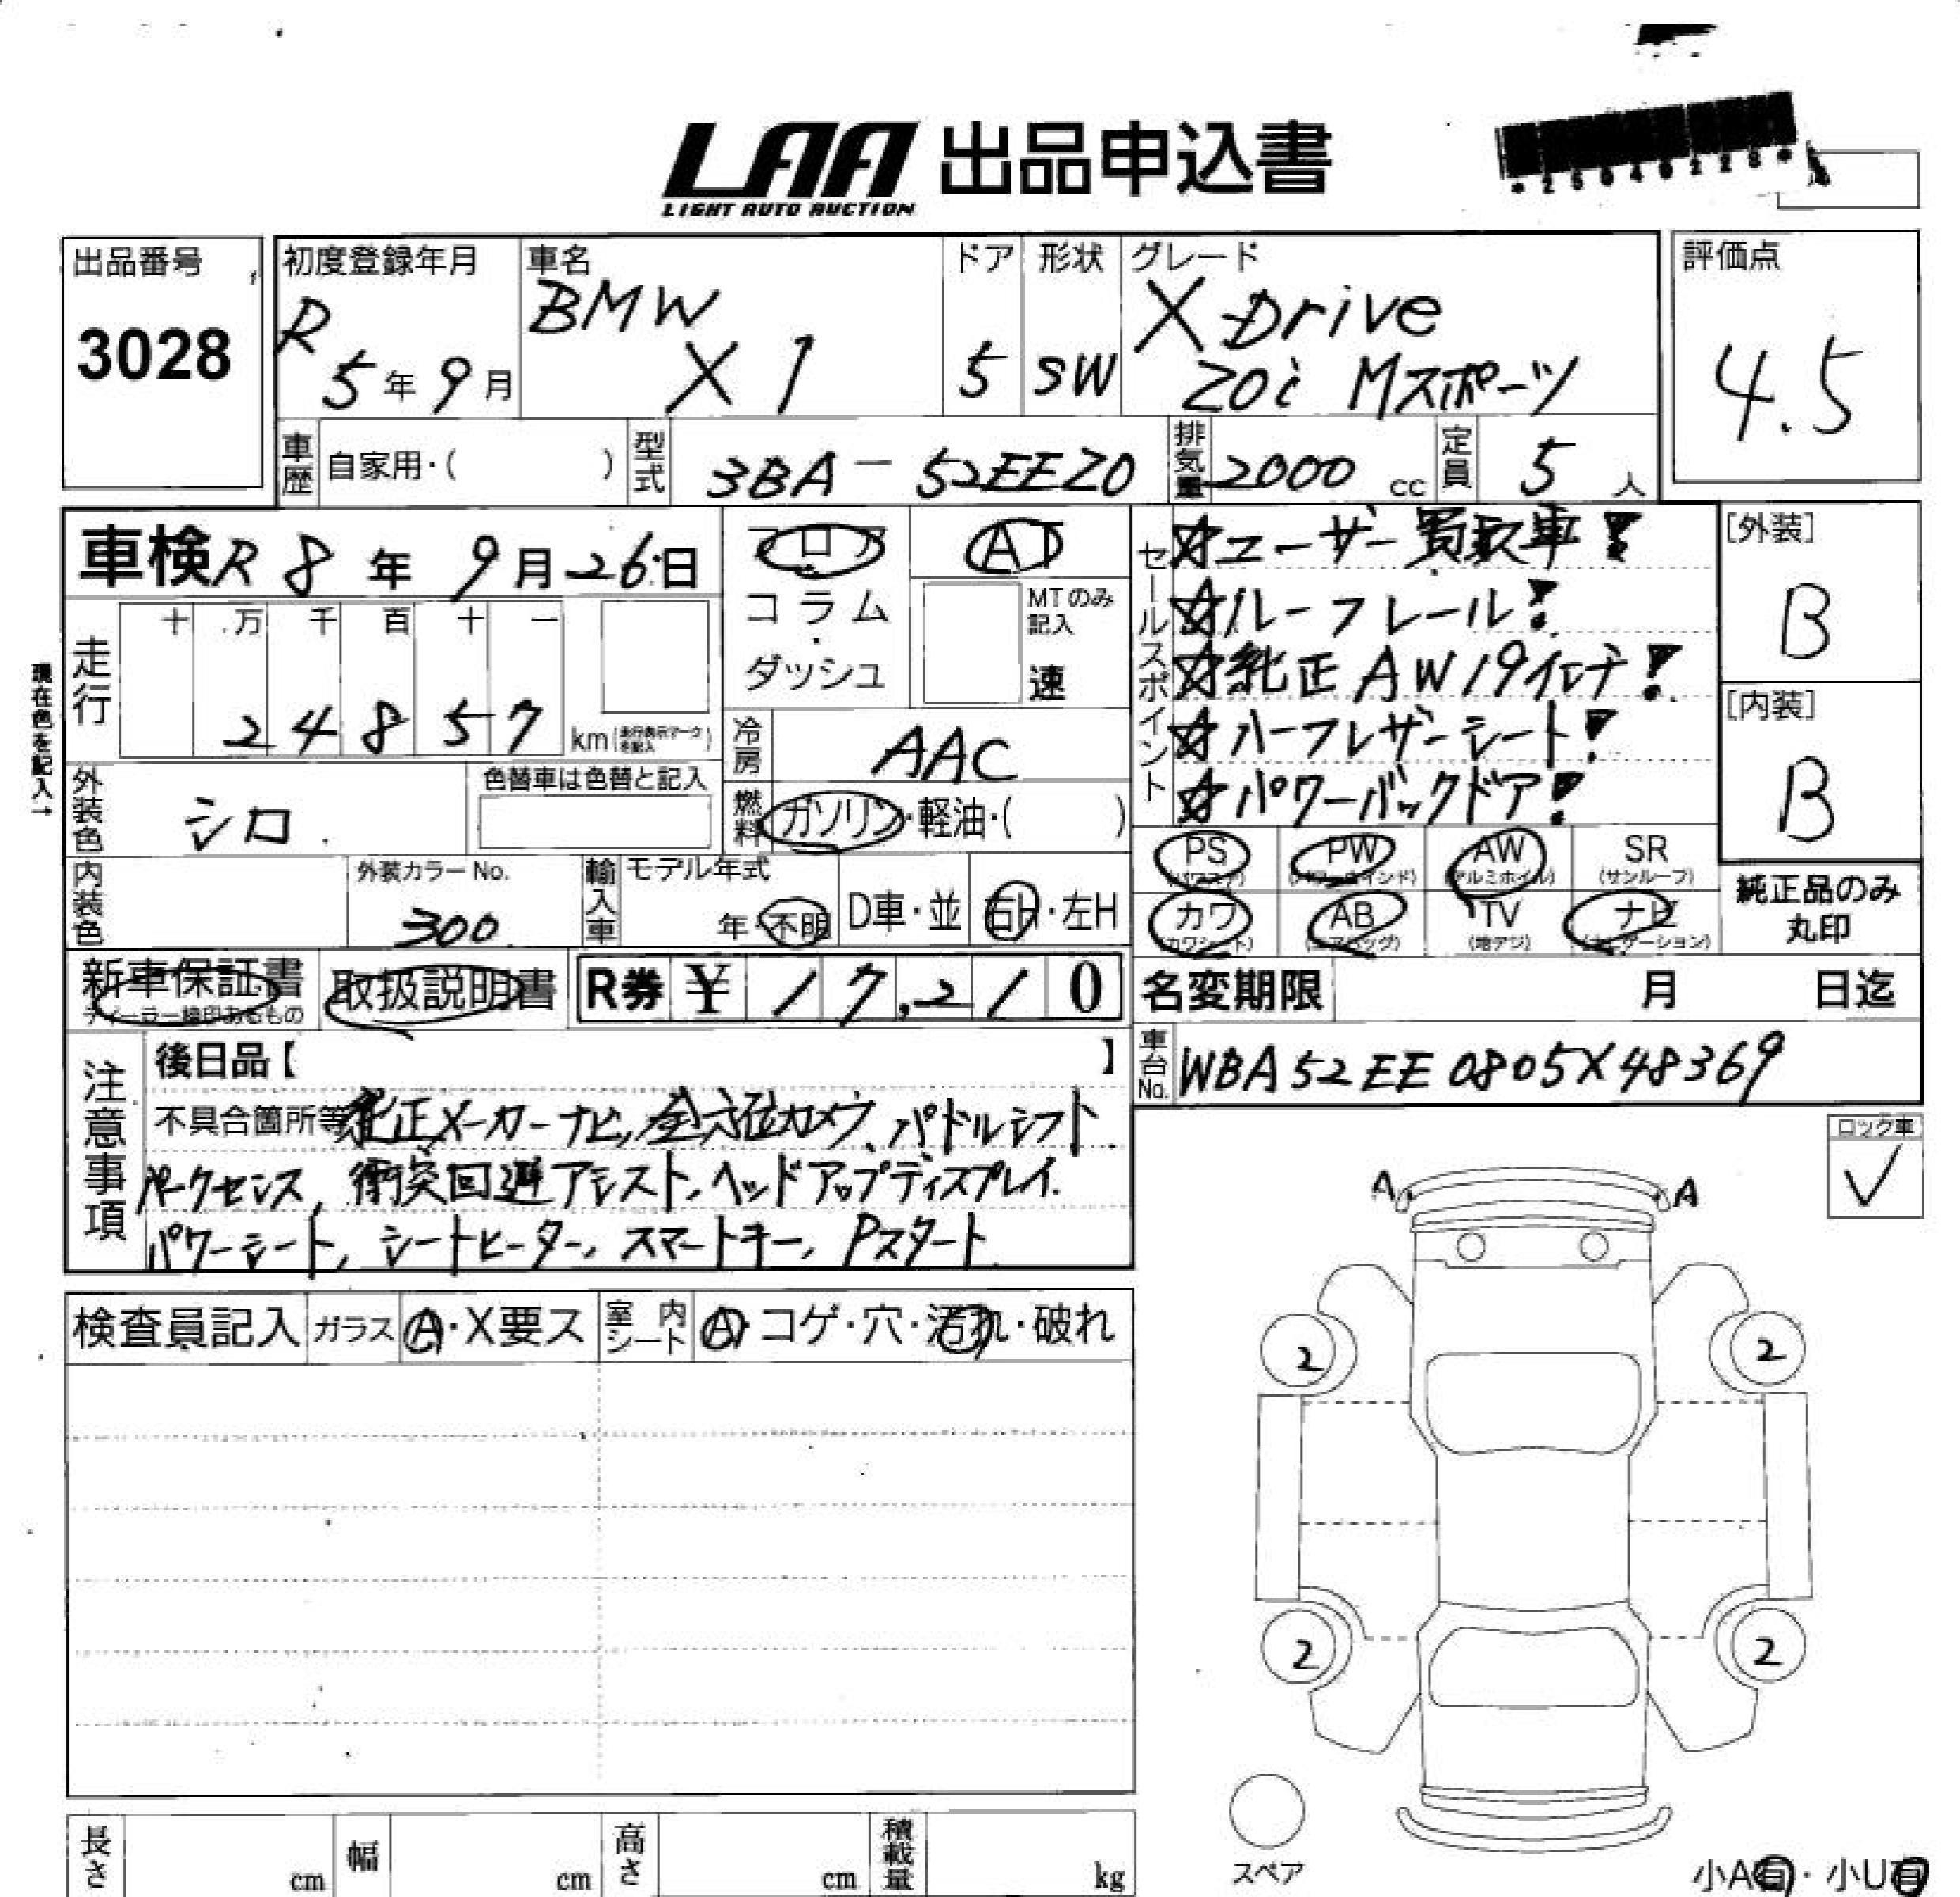 LAA 出品申込書
LIGHT AUTO AUCTION
*25040228*
出品番号
3028
初度登録年月
R 5年 9月
車名
BMW
X1
ドア
5
形状
SW
グレード
X Drive
20i Mスポーツ
評価点
4.5
車歴 自家用・( )
型式 3BA-52EE20
排気量 2000 cc
定員 5 人
車検 R 8 年 9 月 26 日
フロア
コラム
・
ダッシュ
AT
MTのみ
記入
速
走行
十 万 千 百 十 一
2 4 8 5 7 km
現在色を記入→
冷房 AAC
外装色 シロ
色替車は色替と記入
燃料 ガソリン・軽油・( )
内装色
外装カラー No.
300
輸入車
モデル年式
年・不明
D車・並
右H・左H
セールスポイント
☆ユーザー買取車!
☆ルーフレール!
☆純正AW19インチ!
☆ハーフレザーシート!
☆パワーバックドア!
[外装]
B
[内装]
B
PS (パワステ) PW (パワーウインド) AW (アルミホイル) SR (サンルーフ)
カワ (カワシート) AB (エアバッグ) TV (地デジ) ナビ (ナビゲーション)
純正品のみ
丸印
新車保証書
ディーラー検印あるもの
取扱説明書
R券 ¥ 17,210
名変期限 月 日迄
車台No. WBA52EE0805X48369
注意事項
後日品【 】
不具合箇所等 純正メーカーナビ、全方位カメラ、パドルシフト
パークセンス、衝突回避アシスト、ヘッドアップディスプレイ.
パワーシート、シートヒーター、スマートキー、Pスタート
ロック車
✓
検査員記入 ガラス A・X要ス 室内シート A・コゲ・穴・汚れ・破れ
A A
2 2
2 2
スペア
小A有・小U有
長さ cm 幅 cm 高さ cm 積載量 kg